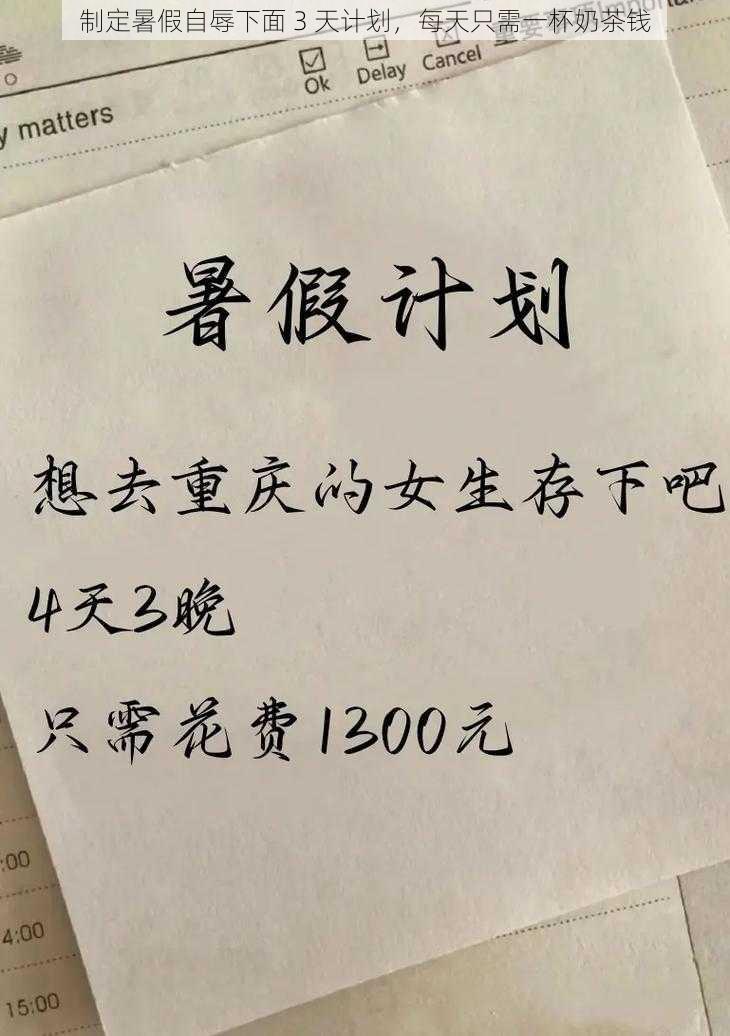 制定暑假自辱下面 3 天计划，每天只需一杯奶茶钱
Ok
Delay
Cancel
y matters
暑假计划
想去重庆的女生存下吧
4天3晚
只需花费1300元
:00
4:00
15:00